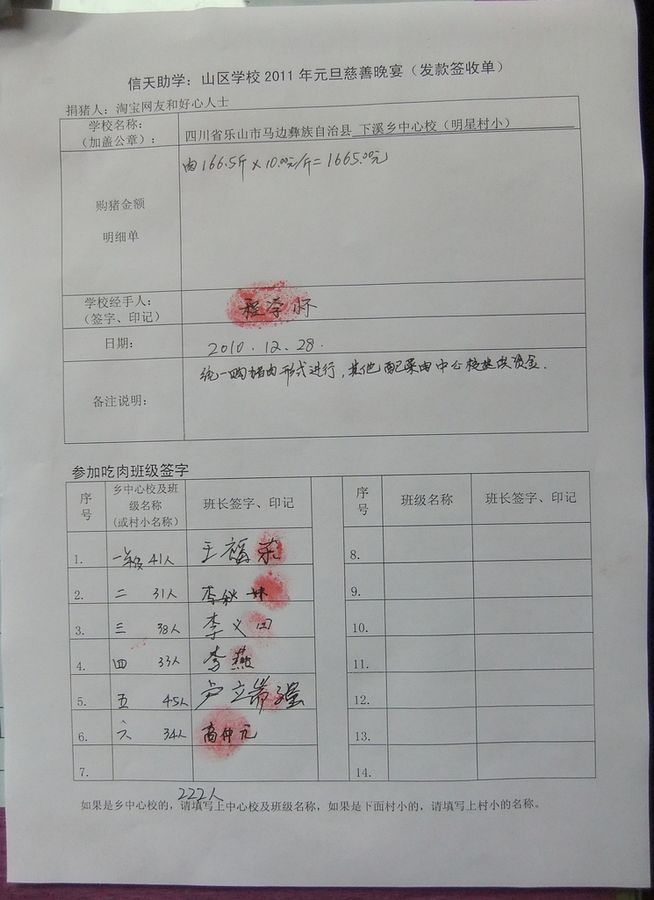 信天助学：山区学校 2011 年元旦慈善晚宴（发款签收单）
捐猪人：淘宝网友和好心人士
学校名称：
（加盖公章）：
四川省乐山市马边彝族自治县 下溪乡中心校（明星村小）
购猪金额
明细单
肉166.5斤×10.00元/斤=1665.00元
学校经手人：
（签字、印记）
程学怀
日期：
2010.12.28.
备注说明：
统一购猪肉形式进行，其他配菜由中心校提供资金.
参加吃肉班级签字
序号 乡中心校及班级名称（或村小名称） 班长签字、印记 序号 班级名称 班长签字、印记
1. 一年级 41人 王福荣 8.
2. 二 31人 李秋妹 9.
3. 三 38人 李义 10.
4. 四 33人 李燕 11.
5. 五 45人 卢立 12.
6. 六 34人 高仲元 13.
7. 14.
222人
如果是乡中心校的，请填写上中心校及班级名称，如果是下面村小的，请填写上村小的名称。